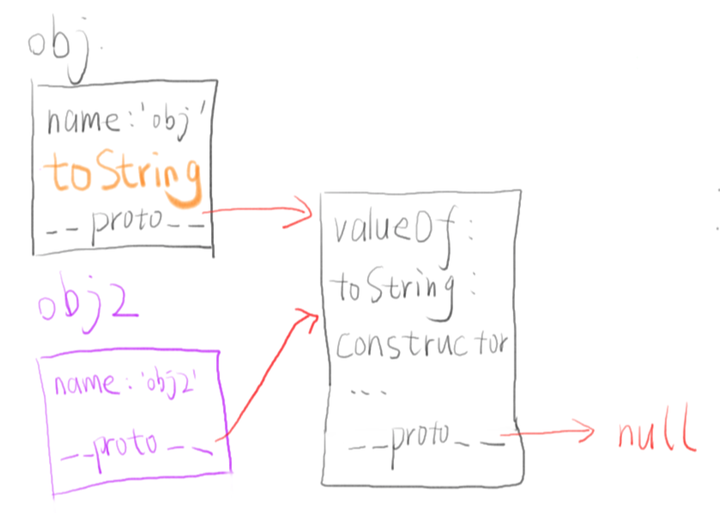 obj.
name:'obj'
toString
__proto__
obj2
name:'obj2'
__proto__
valueOf:
toString:
constructor
...
__proto__
null